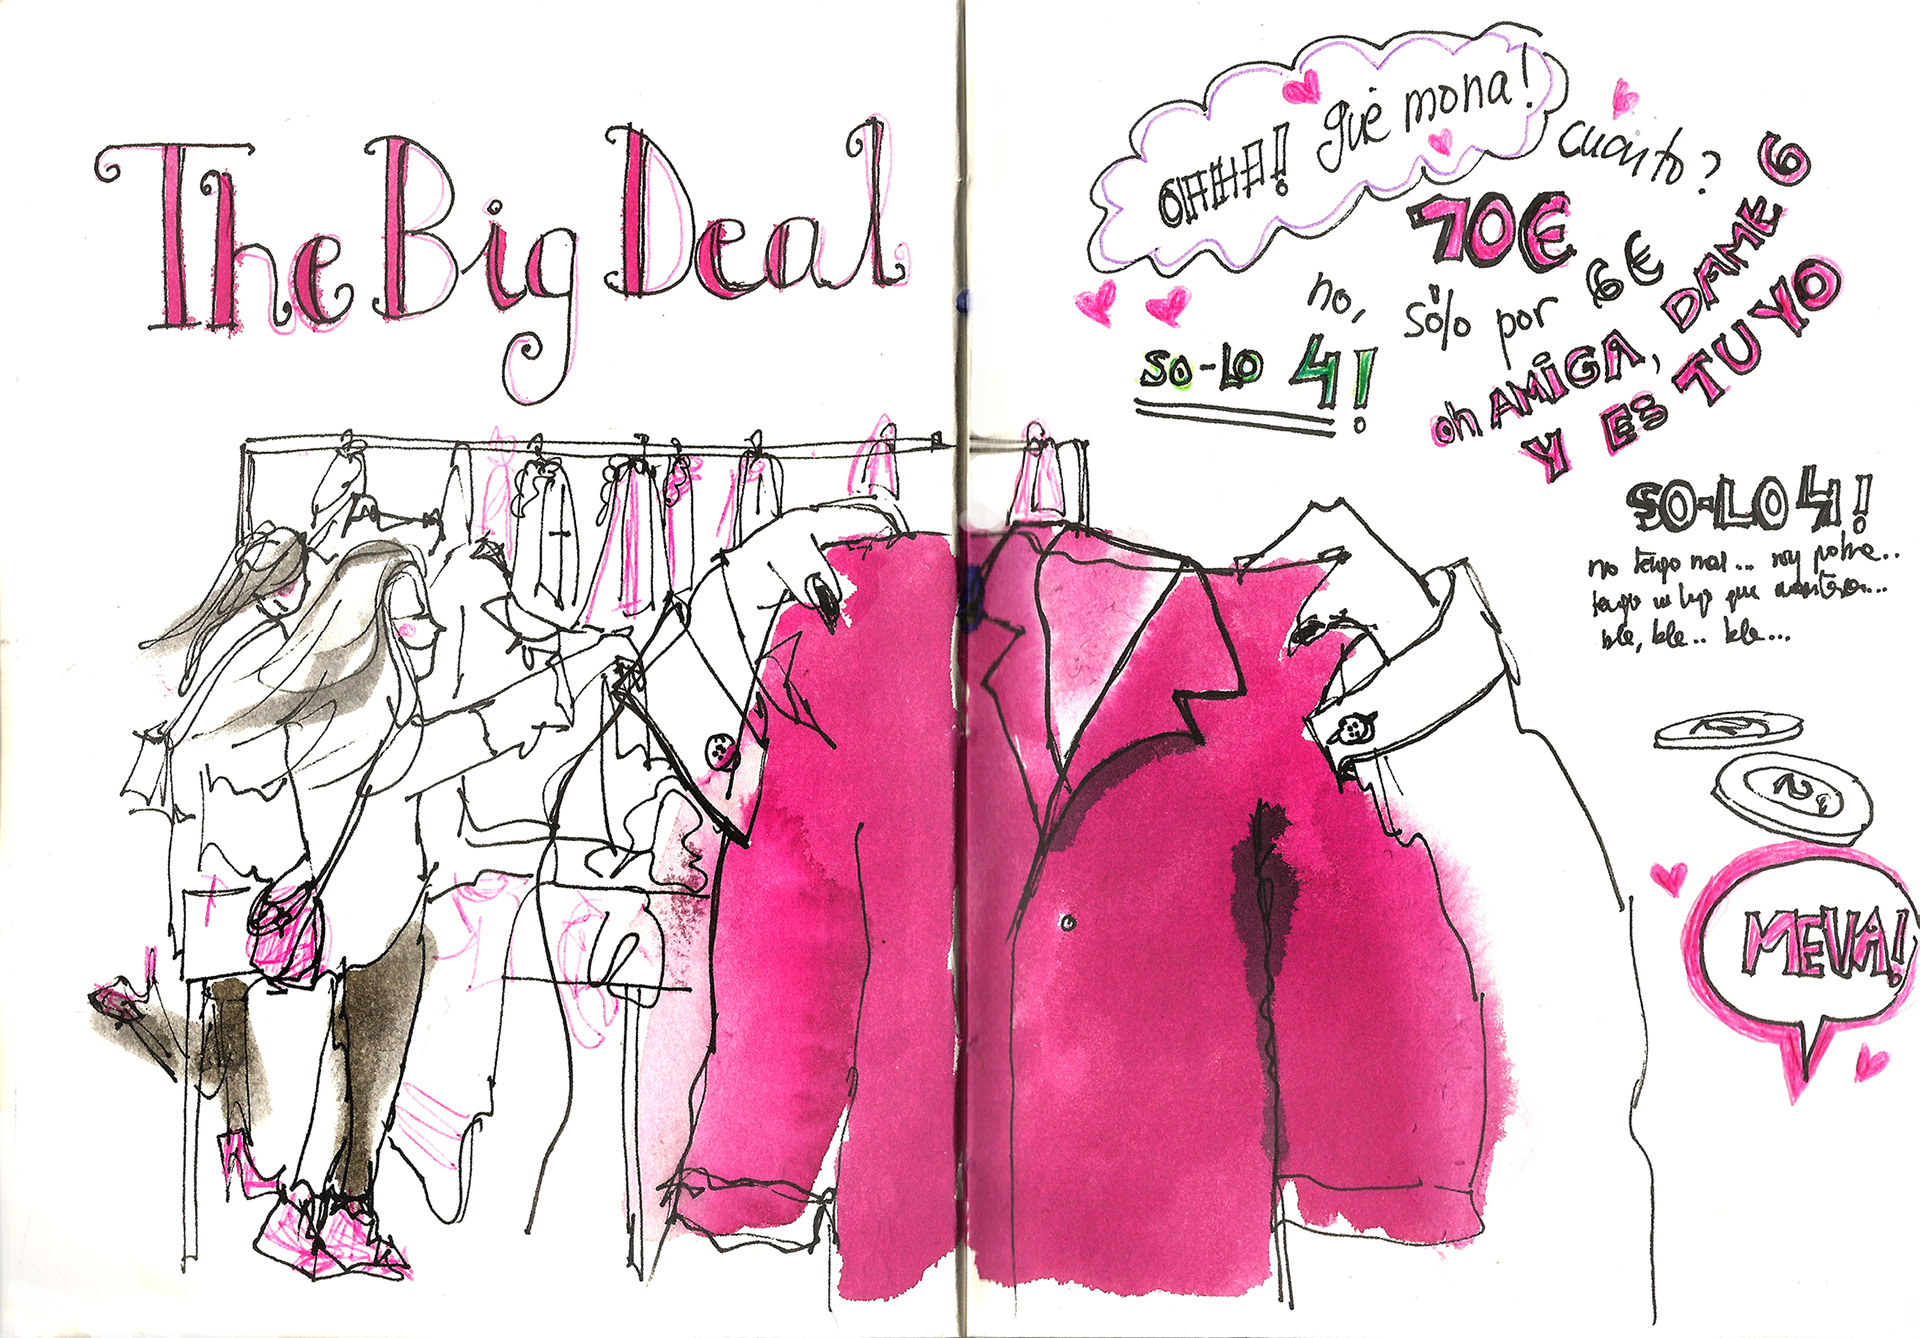 The Big Deal
qué mona!
cuanto?
10€
no, sólo por 6€
SO-LO 4!
oh AMiGA, DAME 6
Y ES TUYO
SO-LO 4!
no tengo mas... soy pobre..
tengo un hijo que mantener...
bla, bla.. bla...
2
2
MEVA!